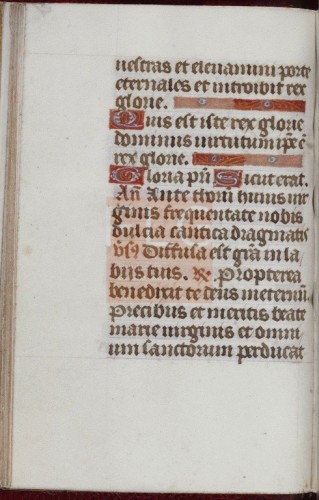 uestras et eleuamini porte
eternales et introibit rex
glorie.
Quis est iste rex glorie
dominus uirtutum ip̄e ē
rex glorie.
Gloria pr̄i Sicut erat.
An̄ Ante thorū huius uir
ginis frequentate nobis
dulcia cantica dragmatis
Diffusa est gr̄a in la
bijs tuis. R. Propterea
benedixit te deus in eternū.
Precibus et meritis beate
marie uirginis et omni
um sanctorum perducat